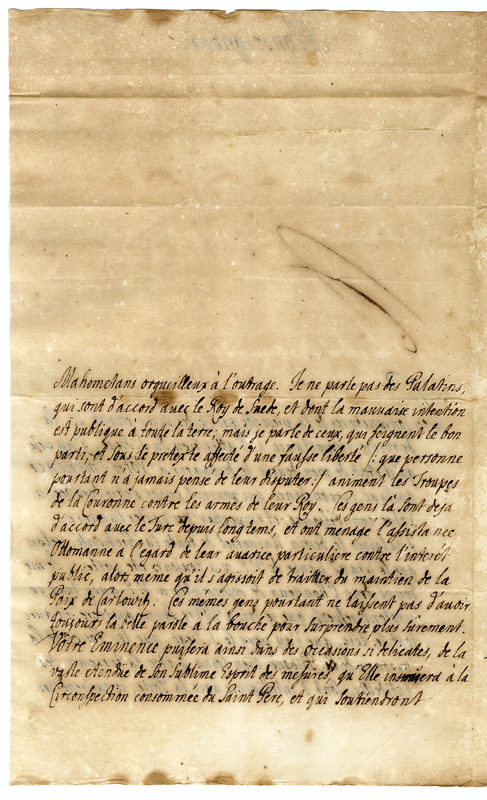 Mahometans orgueilleux à l'outrage. Je ne parle pas des Palatins,
qui sont d'accord avec le Roy de Suede, et dont la mauvaise intention
est publique à toute la terre; mais je parle de ceux, qui feignent le bon
parti, et sous le pretexte affecté d'une fausse liberté /: que personne
pourtant n'à jamais pensé de leur disputer :/ animent les Troupes
de la Couronne contre les armes de leur Roy. Ces gens là sont deja
d'accord avec le Turc depuis longtems, et ont menagé l'assistance
Ottomanne à l'égard de leur avarice particuliere contre l'interét
public, alors même qu'il s'agissoit de traitter du maintien de la
Paix de Carlowitz. Ces memes gens pourtant ne laissent pas d'avoir
toujours la belle parole à la bouche pour surprendre plus surement.
Vôtre Eminence puisera ainsi dans des occasions si delicates, de la
vaste etendue de Son Sublime Esprit des mesures, qu'Elle insinuera à la
Circonspection consommée du Saint Pere, et qui soutiendront